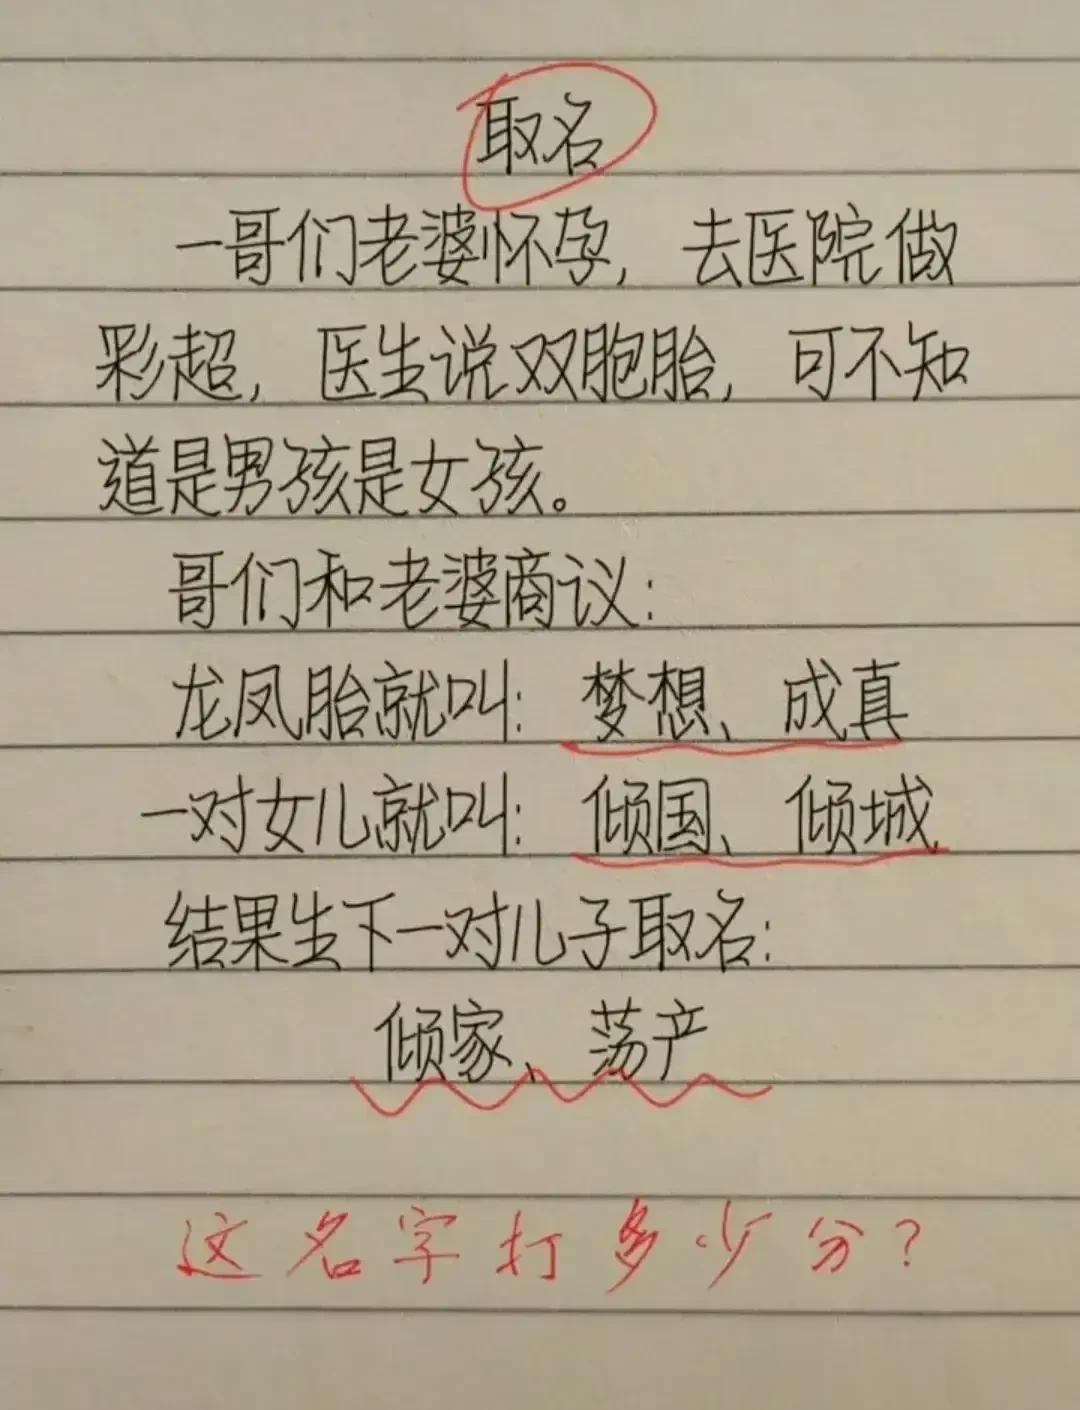 取名
一哥们老婆怀孕，去医院做
彩超，医生说双胞胎，可不知
道是男孩是女孩。
哥们和老婆商议：
龙凤胎就叫：梦想、成真
一对女儿就叫：倾国、倾城.
结果生下一对儿子取名：
倾家、荡产
这名字打多少分？